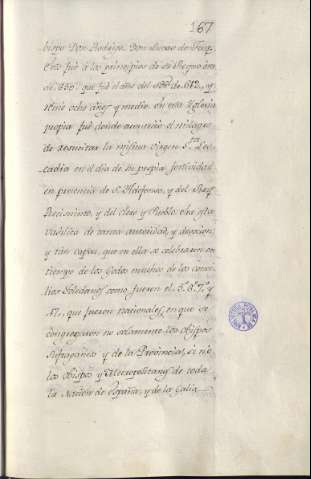 167
bispo Don Rodrigo. Don Lucas de Tuy.
Esto fué á los principios de su Reyno era
de 650. que fué el año del Sr. de 612, y
Reinó ocho años y medio. En esta Iglesia
propia fué donde aconteció el milagro
de resucitar la misma virgen Sta. Leo
cadia en el dia de su propia festividad
en presencia de Sn. Ildefonso, y del Rey
Recisvinto, y del Clero y Pueblo. Era esta
Vasilica de tanta autoridad, y devocion,
y tan capaz, que en ella se celebraron en
tiempo de los Godos muchos de los conci-
lios Toledanos como fueron el 5. 6. 7. y
17. que fueron nacionales, en que se
congregaron no solamente los obispos
sufraganeos y de la Provincia, si no
los obispos y Metropolitanos de toda
la Nacion de España, y de la Galia